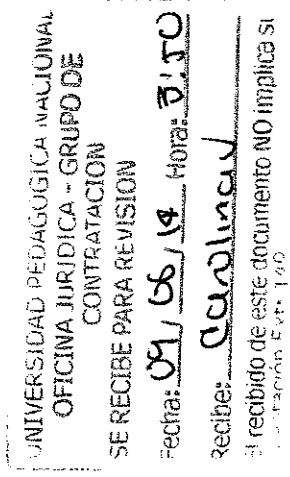 UNIVERSIDAD PEDAGOGICA NACIONAL
OFICINA JURIDICA - GRUPO DE
CONTRATACION
SE RECIBE PARA REVISION
Fecha: 09/06/14 Hora: 3:50
Recibe: Carolina V
El recibido de este documento NO implica su